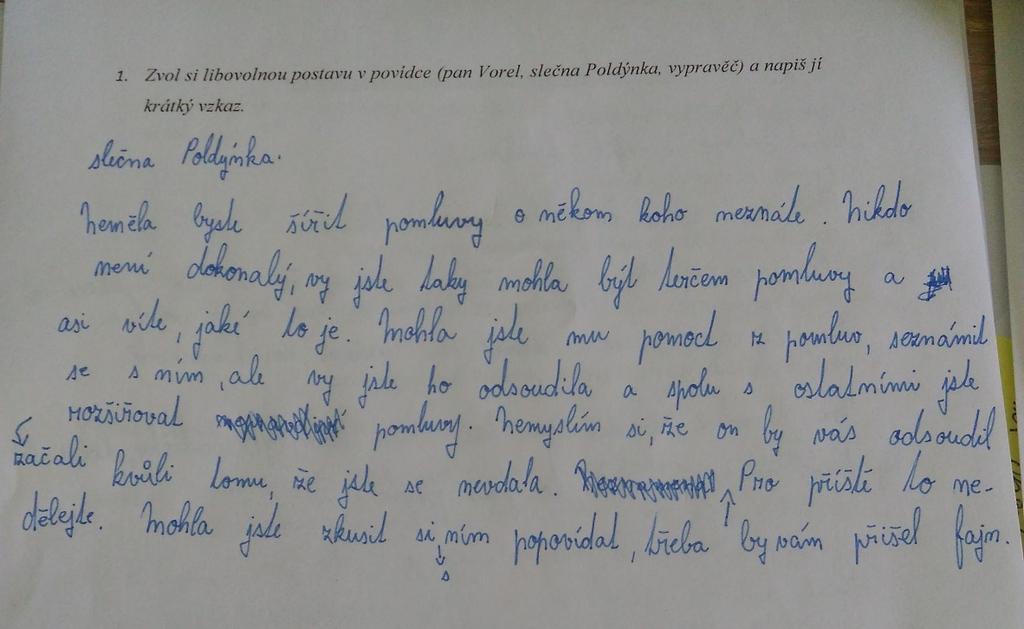 1. Zvol si libovolnou postavu v povídce (pan Vorel, slečna Poldýnka, vypravěč) a napiš jí
krátký vzkaz.
slečna Poldýnka.
Neměla byste šířit pomluvy o někom koho neznáte. Nikdo
není dokonalý, vy jste taky mohla být terčem pomluvy a
asi víte, jaké to je. Mohla jste mu pomoct z pomluv, seznámit
se s ním, ale vy jste ho odsoudila a spolu s ostatními jste
začali rozšiřovat pomluvy. Nemyslím si, že on by vás odsoudil
kvůli tomu, že jste se nevdala. Pro příště to ne-
dělejte. Mohla jste zkusit si s ním popovídat, třeba by vám přišel fajn.